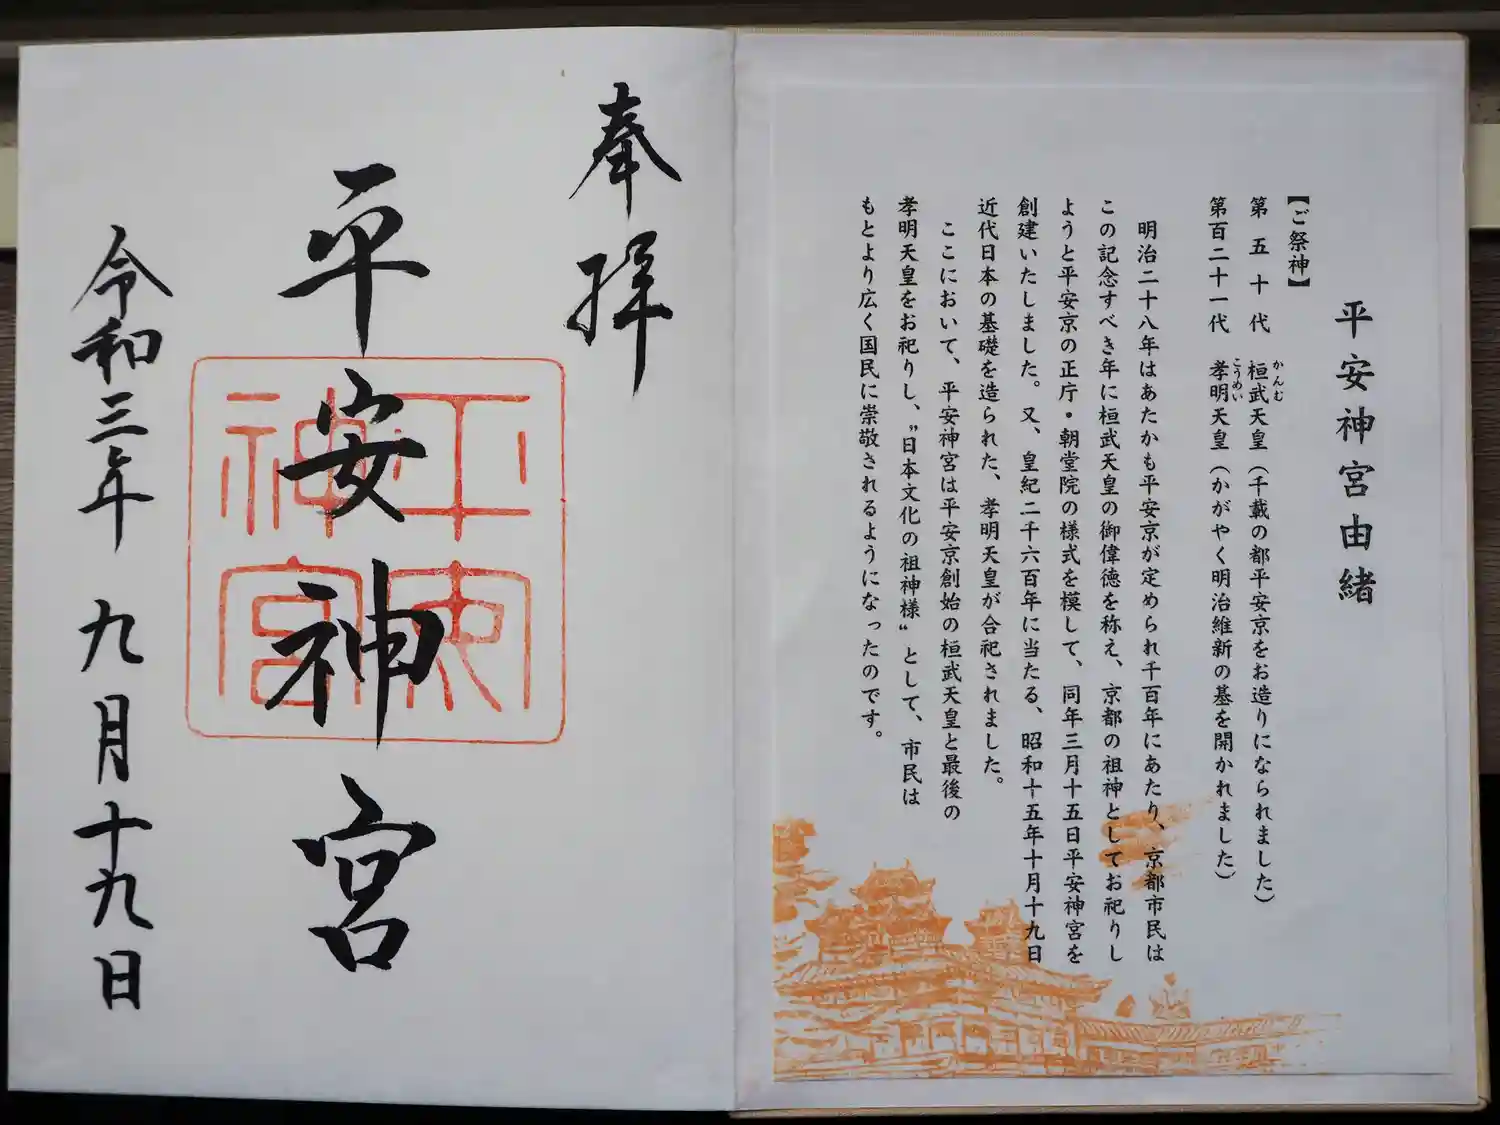 平安神宮由緒
【ご祭神】
第五十代 桓武天皇（千載の都平安京をお造りになられました）
かんむ
第百二十一代 孝明天皇（かがやく明治維新の基を開かれました）
こうめい
明治二十八年はあたかも平安京が定められ千百年にあたり、京都市民は
この記念すべき年に桓武天皇の御偉徳を称え、京都の祖神としてお祀りし
ようと平安京の正庁・朝堂院の様式を模して、同年三月十五日平安神宮を
創建いたしました。又、皇紀二千六百年に当たる、昭和十五年十月十九日
近代日本の基礎を造られた、孝明天皇が合祀されました。
ここにおいて、平安神宮は平安京創始の桓武天皇と最後の
孝明天皇をお祀りし、〝日本文化の祖神様〟として、市民は
もとより広く国民に崇敬されるようになったのです。
奉拝
平安神宮
平安神宮
令和三年 九月十九日